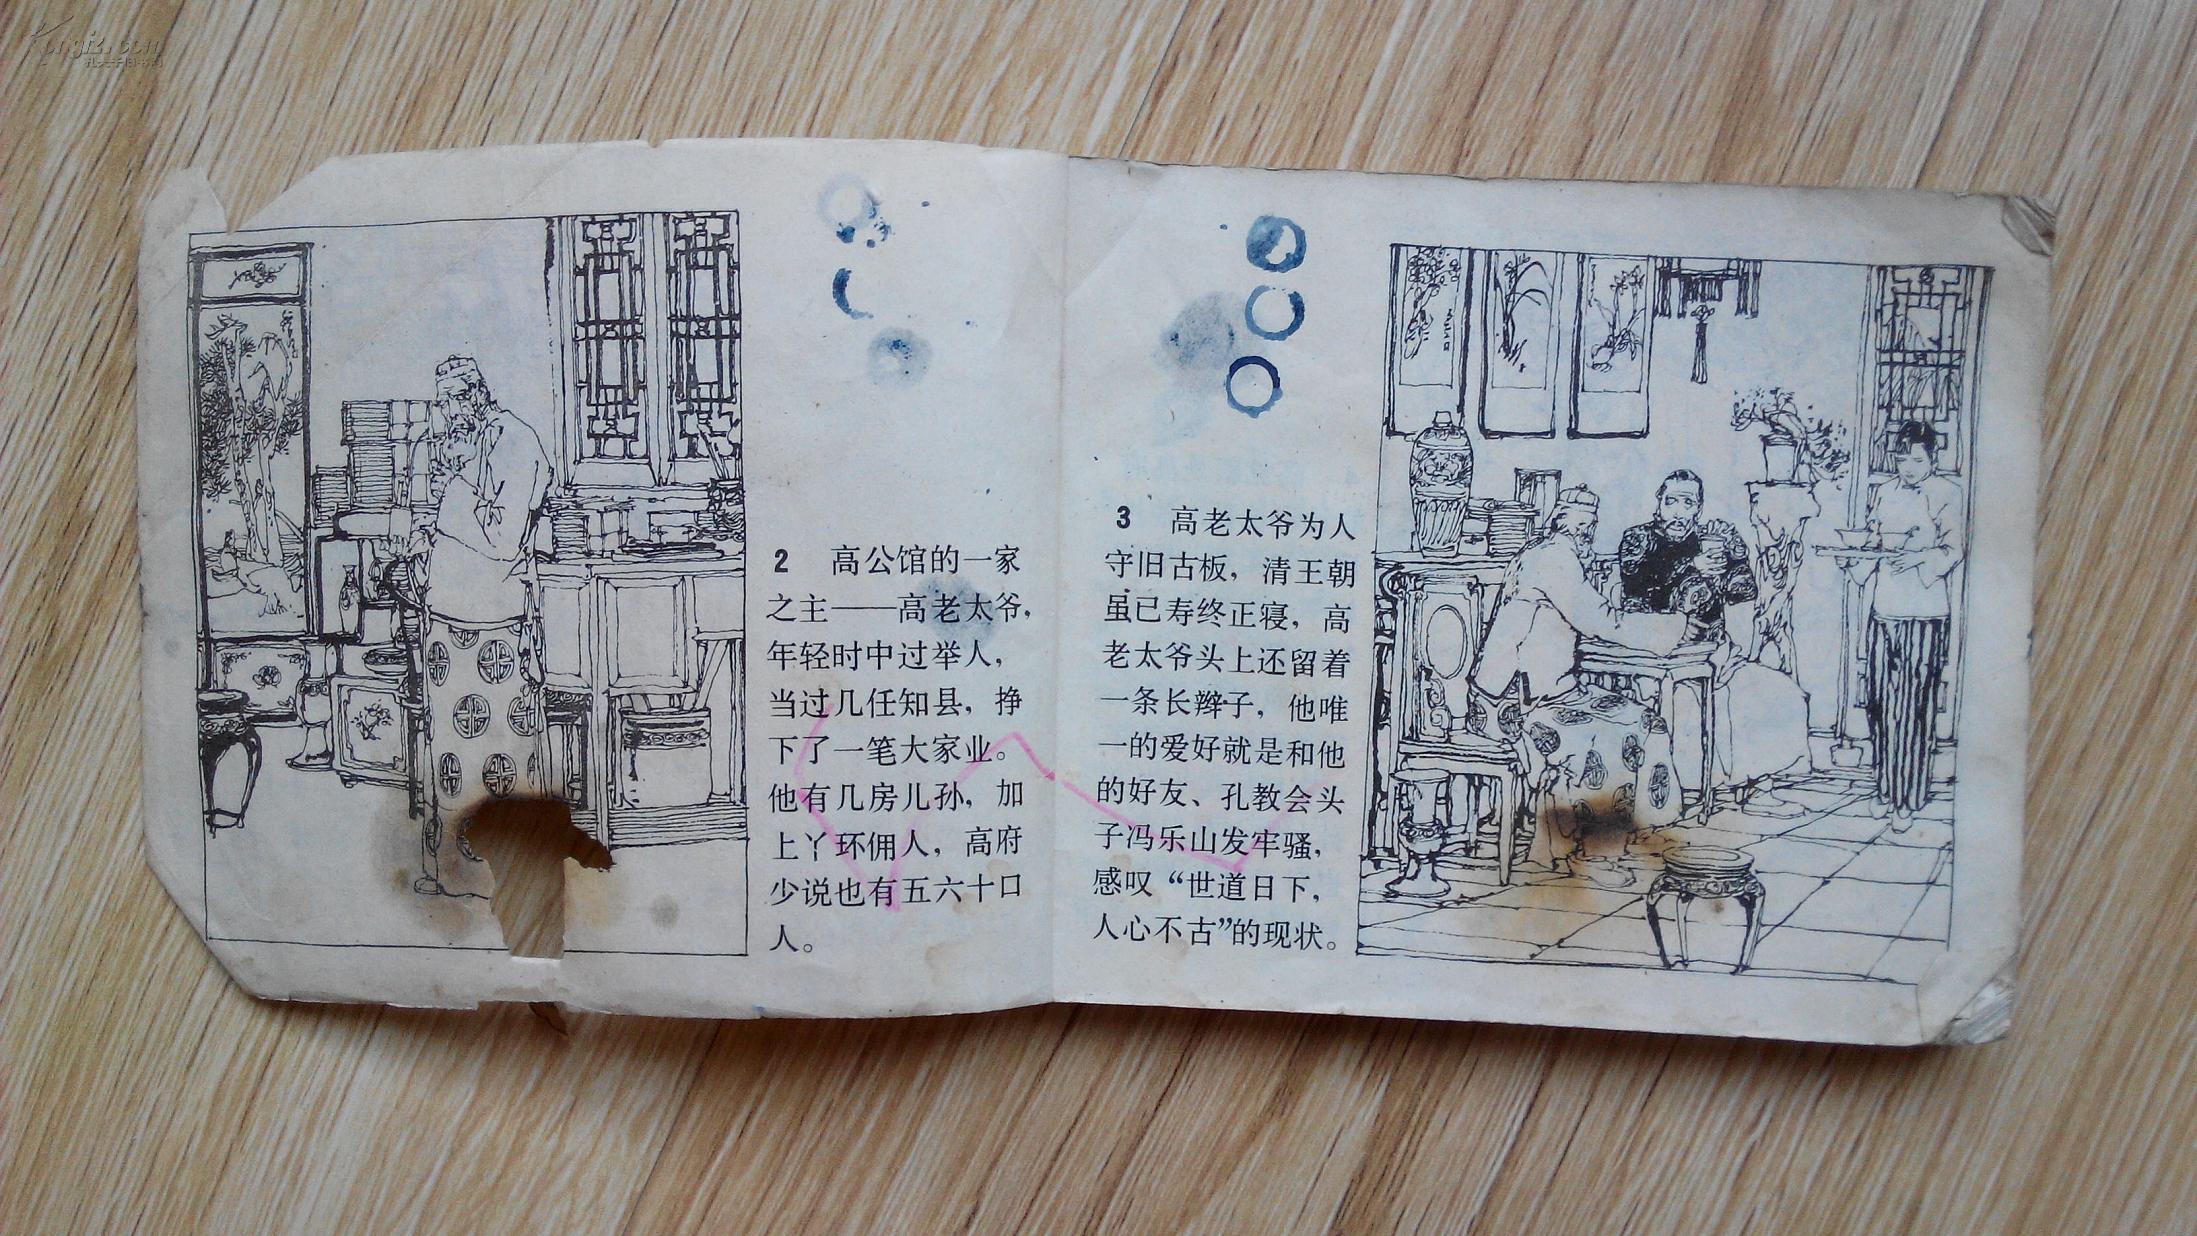 Kongfz.com
孔夫子旧书网
2 高公馆的一家
之主——高老太爷，
年轻时中过举人，
当过几任知县，挣
下了一笔大家业。
他有几房儿孙，加
上丫环佣人，高府
少说也有五六十口
人。
3 高老太爷为人
守旧古板，清王朝
虽已寿终正寝，高
老太爷头上还留着
一条长辫子，他唯
一的爱好就是和他
的好友、孔教会头
子冯乐山发牢骚，
感叹“世道日下，
人心不古”的现状。